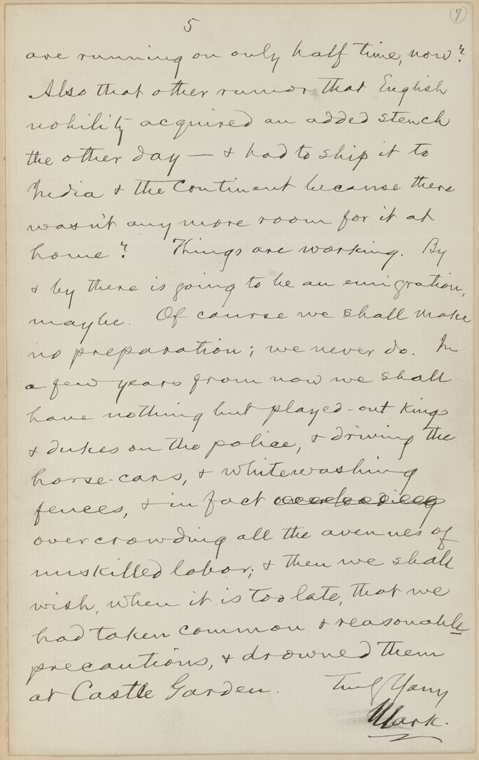 5
(7)
are running on only half time, now"?
Also that other rumor that English
nobility acquired an added stench
the other day — & had to ship it to
India & the Continent because there
wasn't any more room for it at
home"? Things are working. By
& by there is going to be an emigration,
maybe. Of course we shall make
no preparation; we never do. In
a few years from now we shall
have nothing but played-out kings
& dukes on the police, & driving the
horse-cars, & whitewashing
fences, & in fact
overcrowding all the avenues of
unskilled labor; & then we shall
wish, when it is too late, that we
had taken common & reasonable
precautions, & drowned them
at Castle Garden. Truly Yours
Mark.